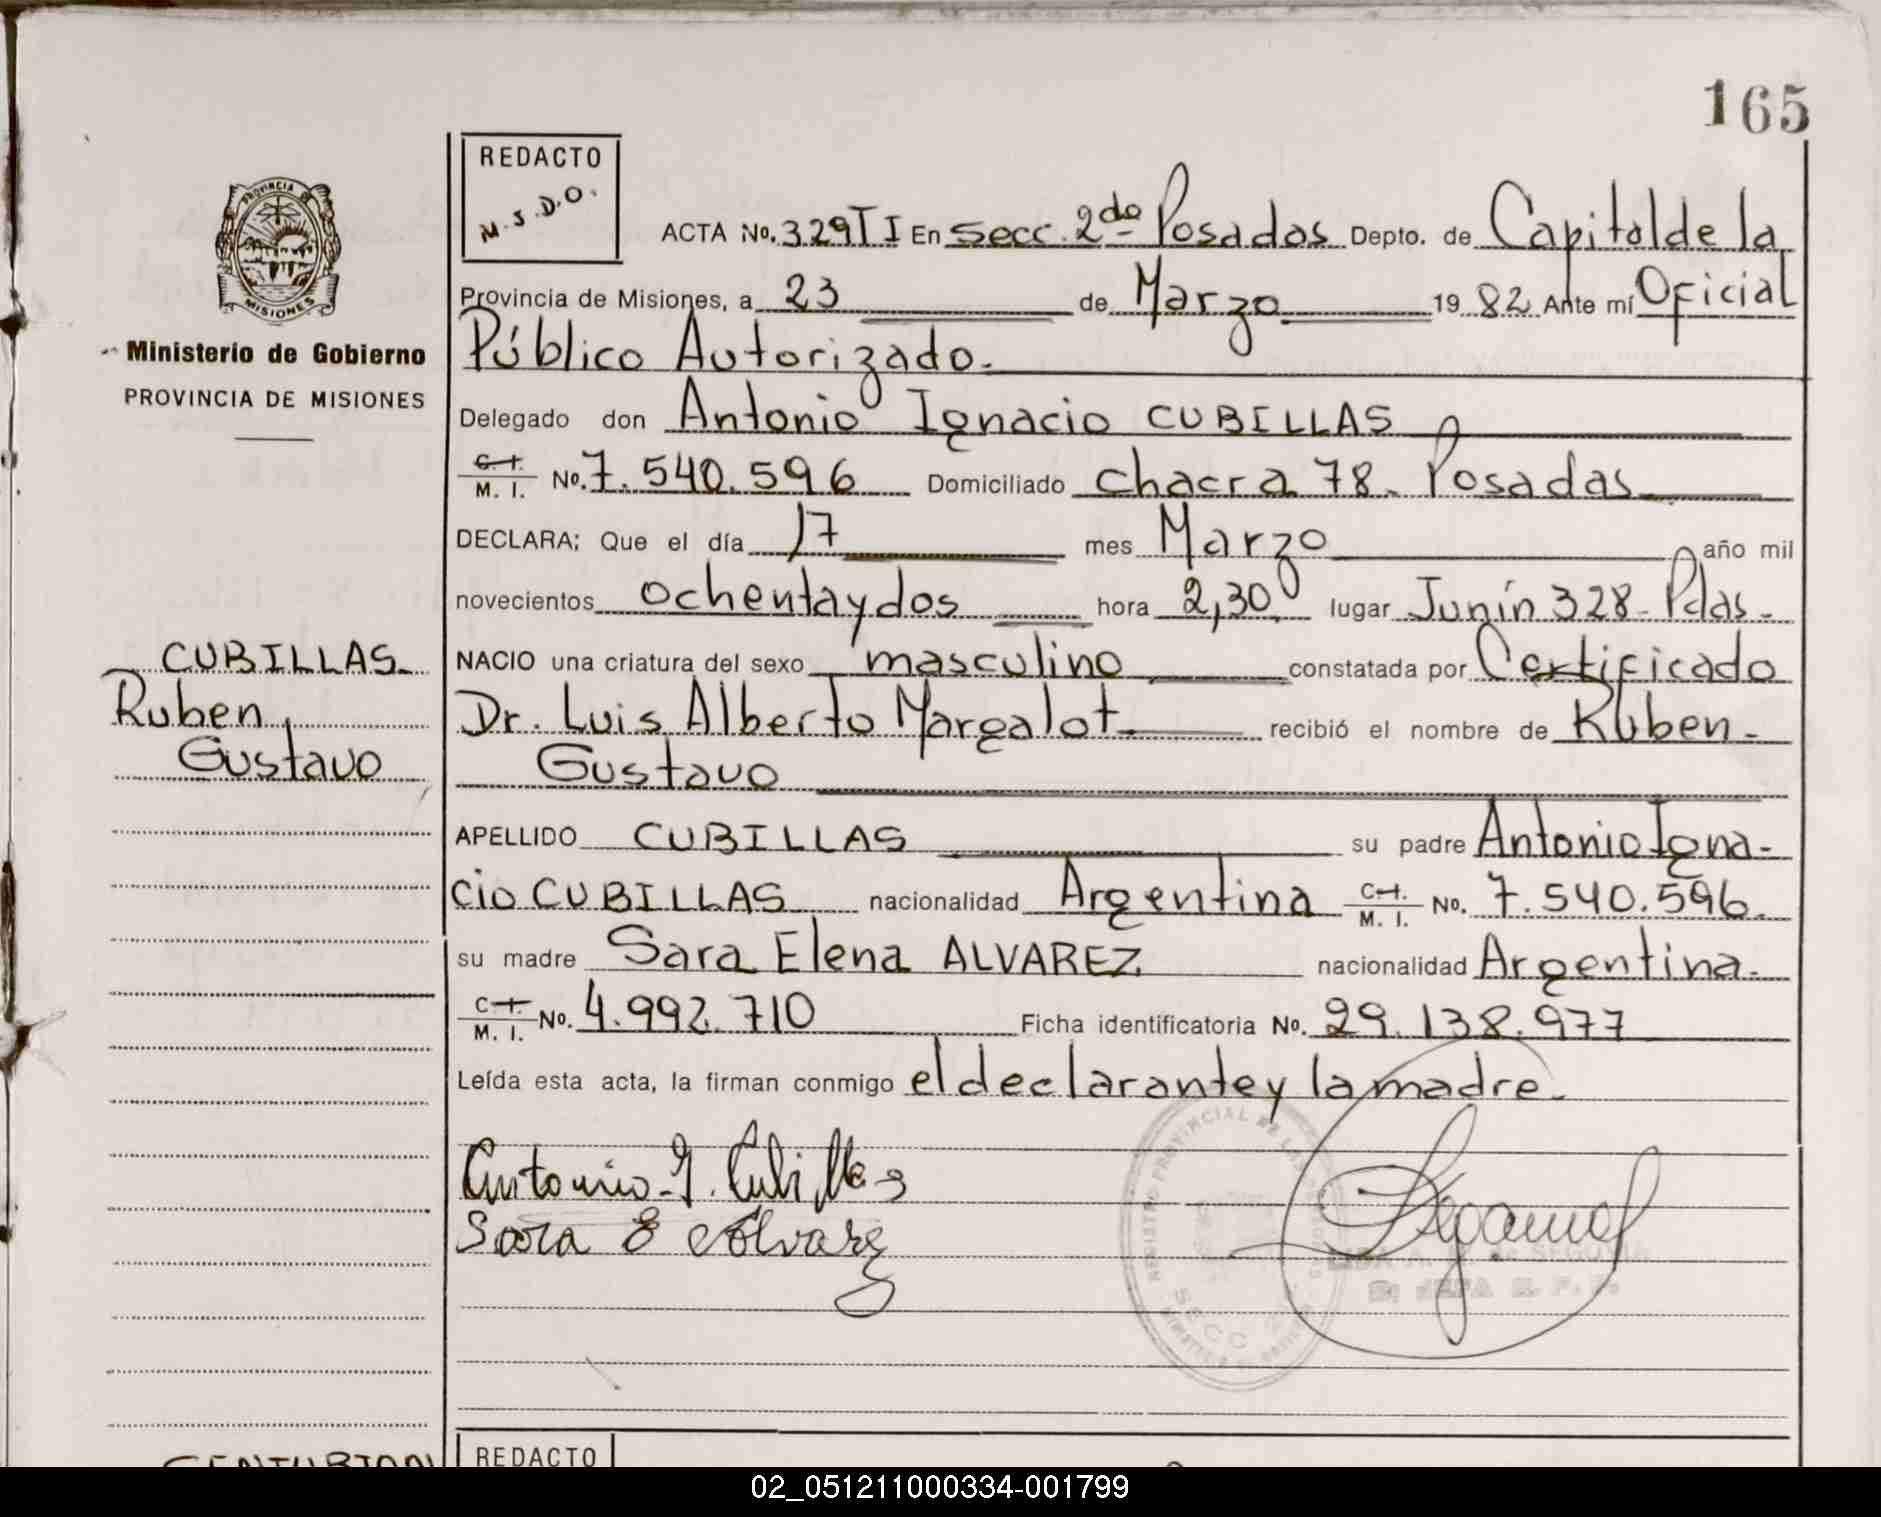 165
REDACTO
M.S.D.O.
PROVINCIA DE
MISIONES
Ministerio de Gobierno
PROVINCIA DE MISIONES
ACTA No. 329 T I En Secc. 2da Posadas Depto. de Capital de la
Provincia de Misiones, a 23 de Marzo 19 82 Ante mí Oficial
Público Autorizado.
Delegado don Antonio Ignacio CUBILLAS
C. I. M. I. No. 7.540.596 Domiciliado Chacra 78. Posadas
DECLARA: Que el día 17 mes Marzo año mil
novecientos ochenta y dos hora 2,30 lugar Junín 328- Pdas.
CUBILLAS
Ruben,
Gustavo
NACIO una criatura del sexo masculino constatada por Certificado
Dr. Luis Alberto Margalot recibió el nombre de Ruben
Gustavo
APELLIDO CUBILLAS su padre Antonio Igna-
cio CUBILLAS nacionalidad Argentina C. I. M. I. No. 7.540.596.
su madre Sara Elena ALVAREZ nacionalidad Argentina.
C. I. M. I. No. 4.992.710 Ficha identificatoria No. 29.138.977
Leída esta acta, la firman conmigo el declarante y la madre.
Antonio I. Cubillas
Sara E Alvarez
REGISTRO PROVINCIAL DE LAS
SECC
de SEGOVIA
JEFA R. P.
REDACTO
CENTURION
02_051211000334-001799